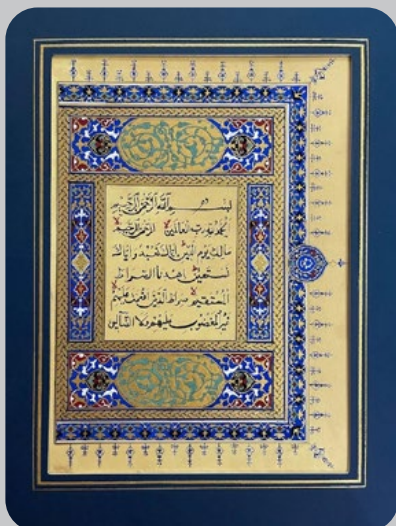 بسم الله الرحمن الرحيم
الحمد لله رب العالمين الرحمن الرحيم
مالك يوم الدين اياك نعبد و اياك
نستعين اهدنا الصراط
المستقيم صراط الذين انعمت عليهم
غير المغضوب عليهم ولا الضالين